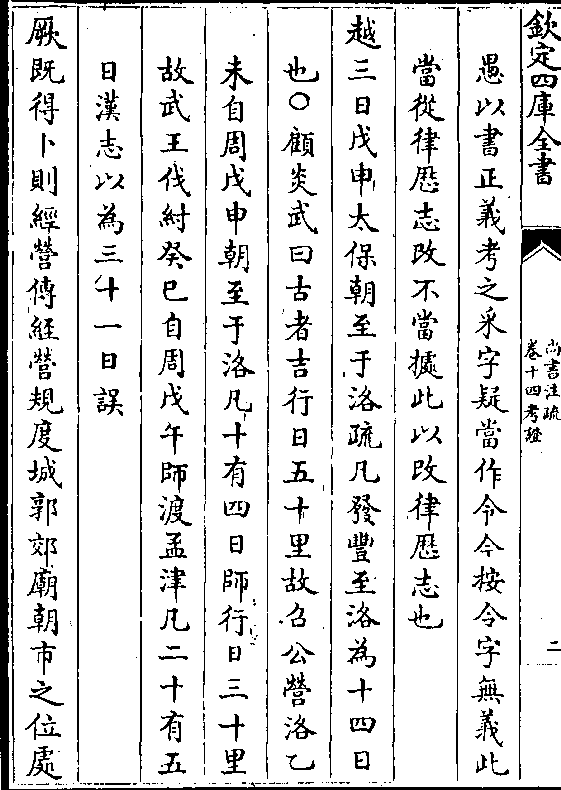 欽定四庫全書
尚書注疏
卷十四考證
二
愚以書正義考之采字疑當作令今按令字無義此
當從律歴志改不當據此以改律歴志也
越三日戊申太保朝至于洛疏凡發豐至洛為十四日
也○顧炎武曰古者吉行日五十里故召公營洛乙
未自周戊申朝至于洛凡十有四日師行日三十里
故武王伐紂癸巳自周戊午師渡孟津凡二十有五
日漢志以為三十一日誤
厥既得卜則經營傳經營規度城郭郊廟朝市之位處